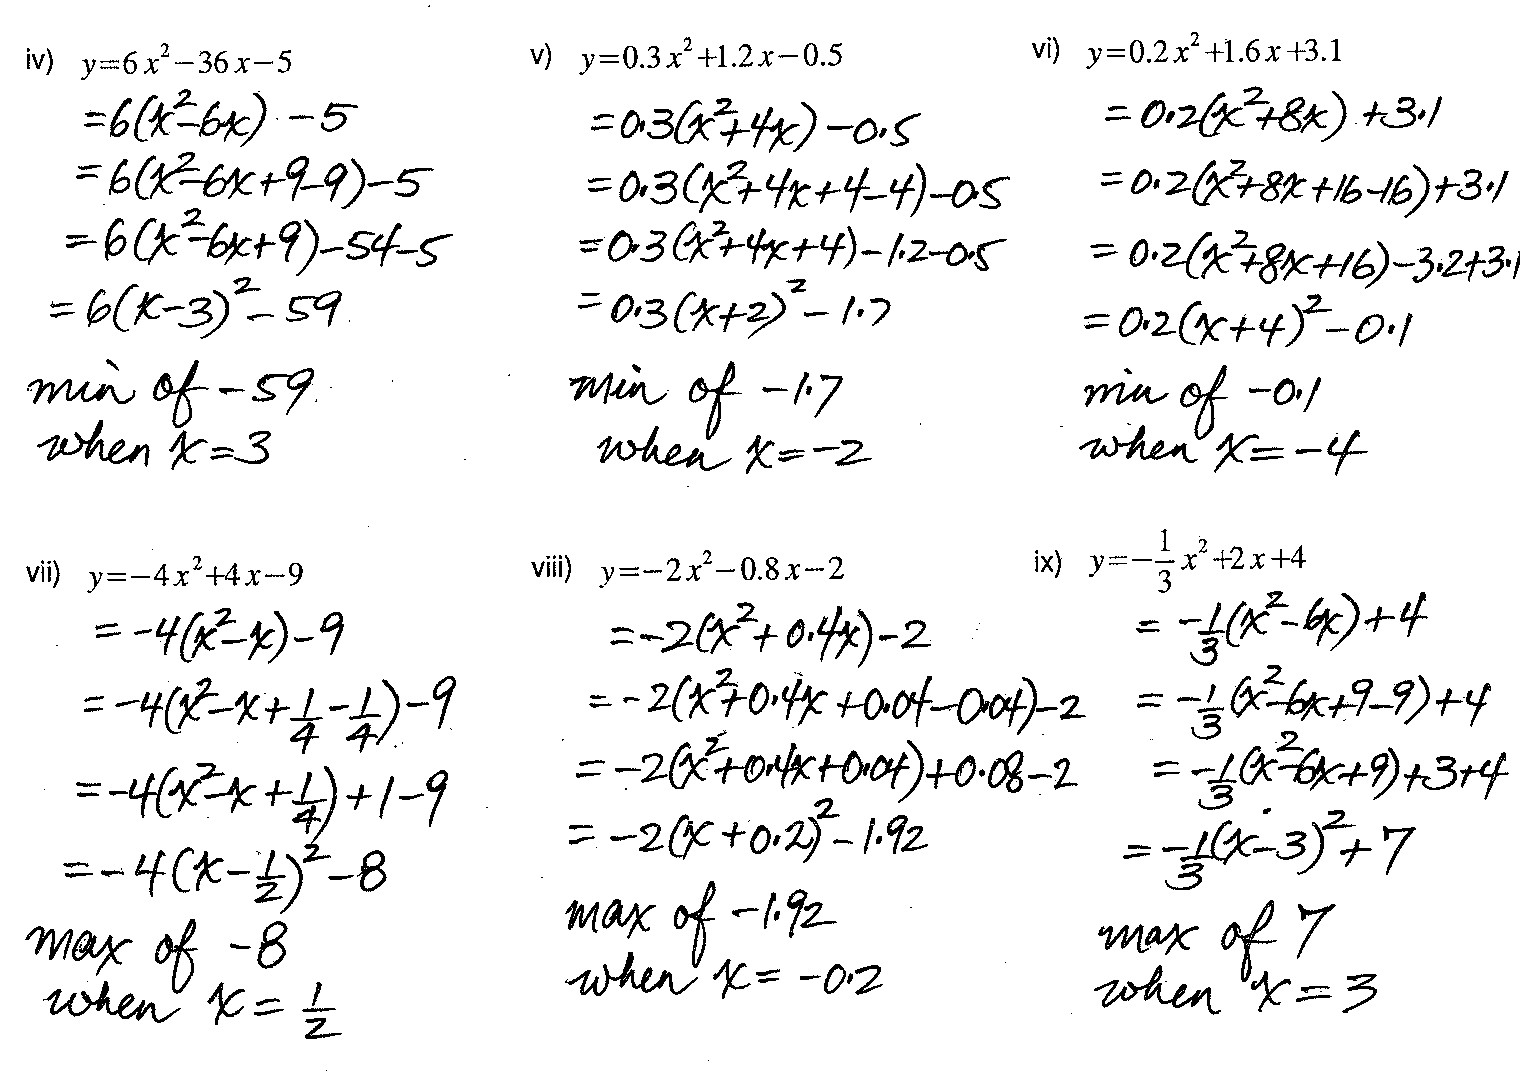 iv) y=6x²−36x−5
=6(x²−6x) −5
=6(x²−6x+9−9)−5
=6(x²−6x+9)−54−5
=6(x−3)²−59
min of −59
when x=3
v) y=0.3x²+1.2x−0.5
=0.3(x²+4x)−0.5
=0.3(x²+4x+4−4)−0.5
=0.3(x²+4x+4)−1.2−0.5
=0.3(x+2)²−1.7
min of −1.7
when x=−2
vi) y=0.2x²+1.6x+3.1
=0.2(x²+8x)+3.1
=0.2(x²+8x+16−16)+3.1
=0.2(x²+8x+16)−3.2+3.1
=0.2(x+4)²−0.1
min of −0.1
when x=−4
vii) y=−4x²+4x−9
=−4(x²−x)−9
=−4(x²−x+1/4−1/4)−9
=−4(x²−x+1/4)+1−9
=−4(x−1/2)²−8
max of −8
when x=1/2
viii) y=−2x²−0.8x−2
=−2(x²+0.4x)−2
=−2(x²+0.4x+0.04−0.04)−2
=−2(x²+0.4x+0.04)+0.08−2
=−2(x+0.2)²−1.92
max of −1.92
when x=−0.2
ix) y=−1/3x²+2x+4
=−1/3(x²−6x)+4
=−1/3(x²−6x+9−9)+4
=−1/3(x²−6x+9)+3+4
=−1/3(x−3)²+7
max of 7
when x=3